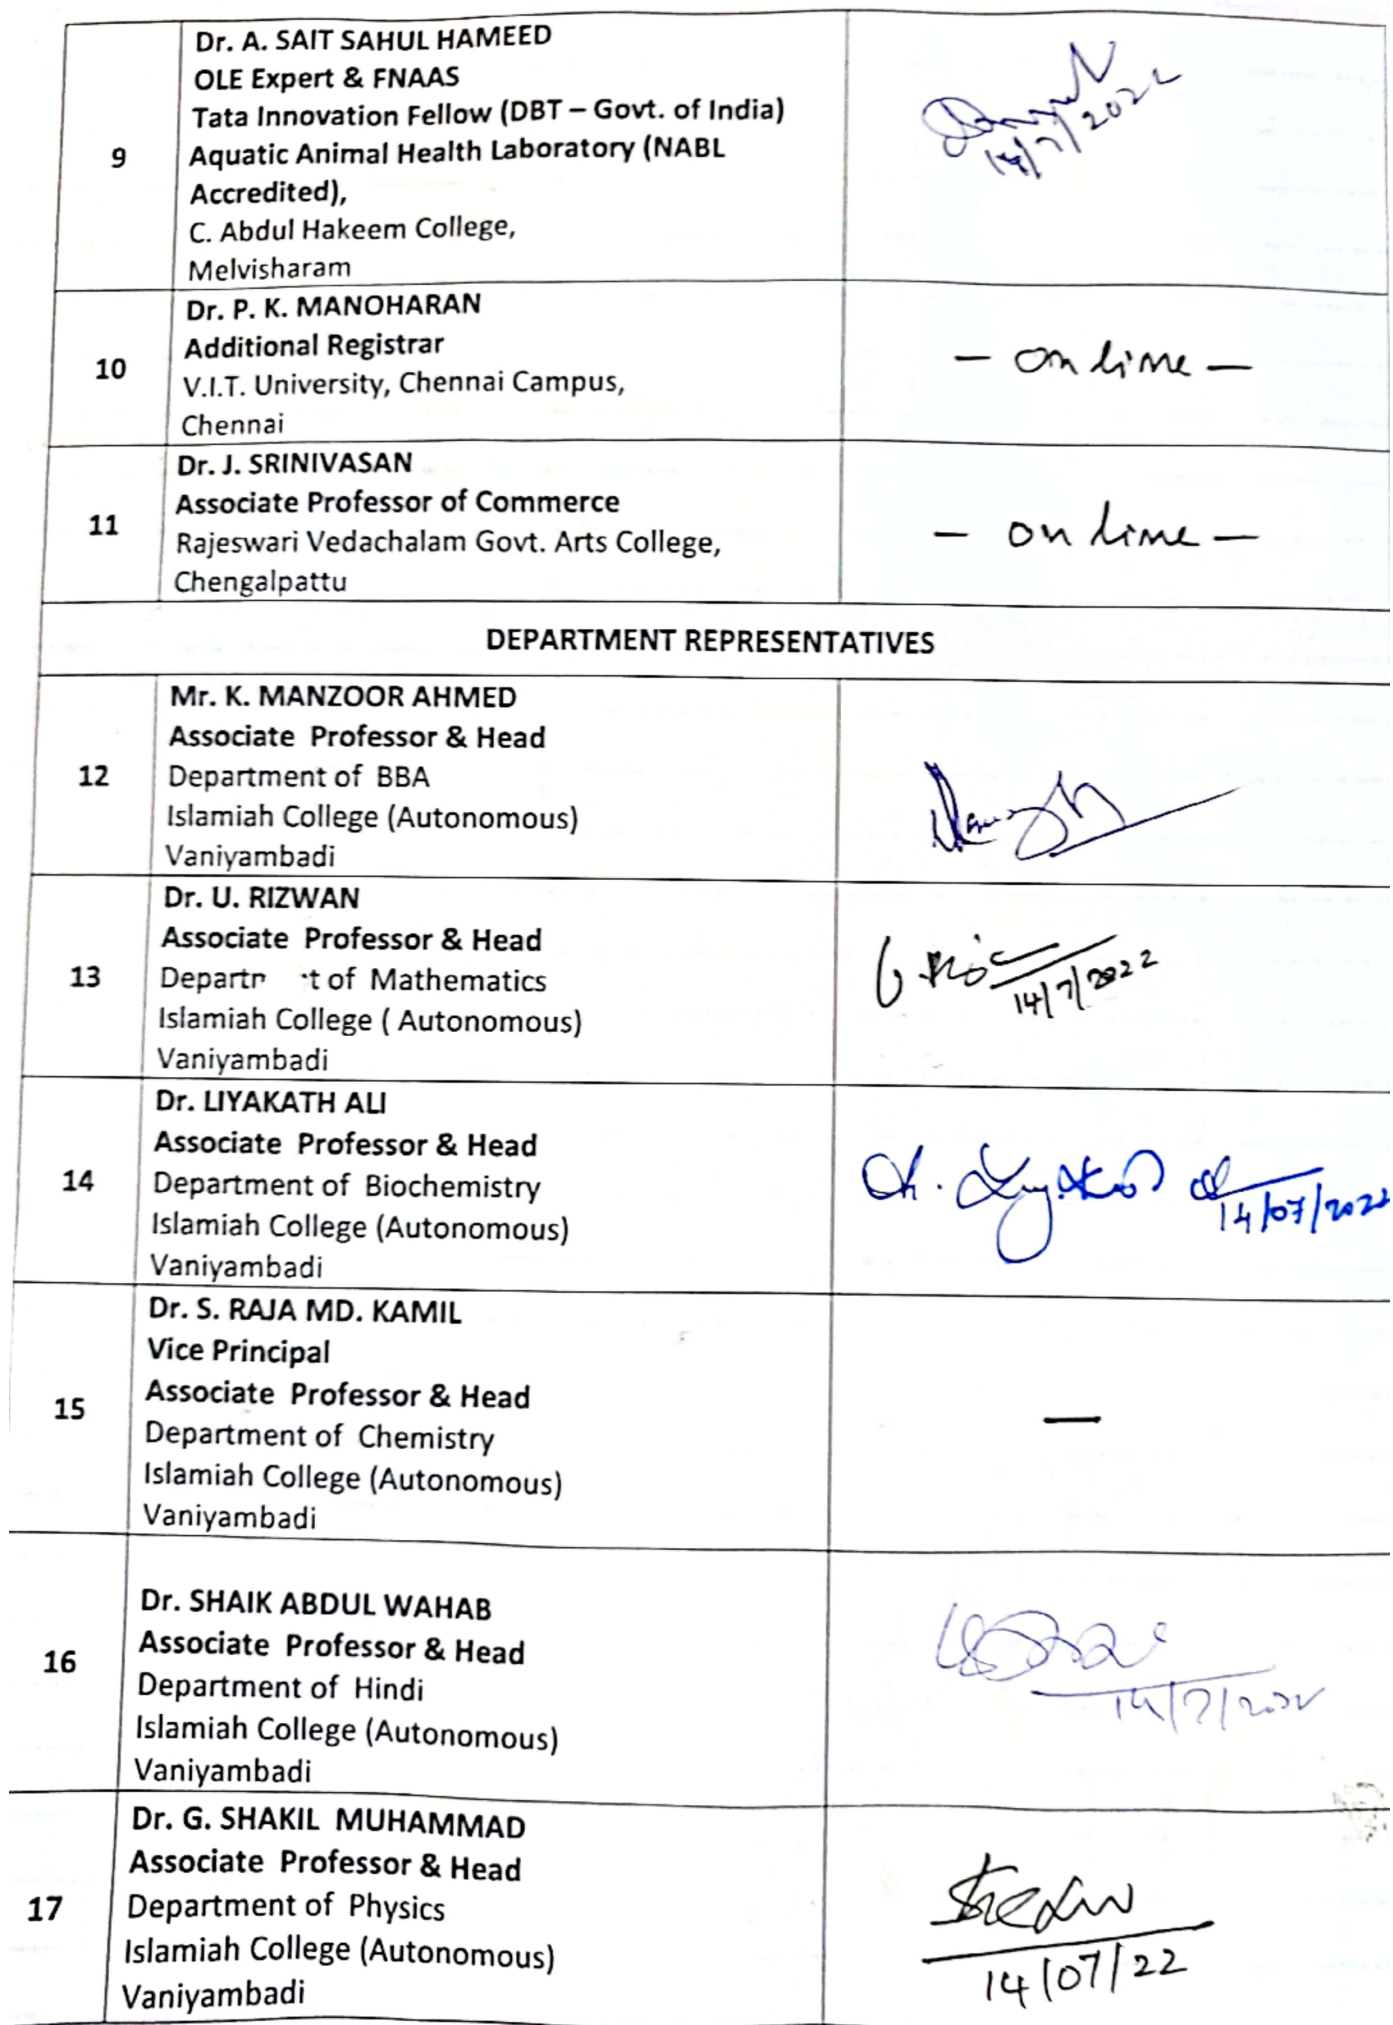 9
Dr. A. SAIT SAHUL HAMEED
OLE Expert & FNAAS
Tata Innovation Fellow (DBT – Govt. of India)
Aquatic Animal Health Laboratory (NABL
Accredited),
C. Abdul Hakeem College,
Melvisharam
14/7/2022
10
Dr. P. K. MANOHARAN
Additional Registrar
V.I.T. University, Chennai Campus,
Chennai
— on line —
11
Dr. J. SRINIVASAN
Associate Professor of Commerce
Rajeswari Vedachalam Govt. Arts College,
Chengalpattu
— on line —
DEPARTMENT REPRESENTATIVES
12
Mr. K. MANZOOR AHMED
Associate Professor & Head
Department of BBA
Islamiah College (Autonomous)
Vaniyambadi
13
Dr. U. RIZWAN
Associate Professor & Head
Departr t of Mathematics
Islamiah College ( Autonomous)
Vaniyambadi
14/7/2022
14
Dr. LIYAKATH ALI
Associate Professor & Head
Department of Biochemistry
Islamiah College (Autonomous)
Vaniyambadi
14/07/2022
15
Dr. S. RAJA MD. KAMIL
Vice Principal
Associate Professor & Head
Department of Chemistry
Islamiah College (Autonomous)
Vaniyambadi
—
16
Dr. SHAIK ABDUL WAHAB
Associate Professor & Head
Department of Hindi
Islamiah College (Autonomous)
Vaniyambadi
14/7/2022
17
Dr. G. SHAKIL MUHAMMAD
Associate Professor & Head
Department of Physics
Islamiah College (Autonomous)
Vaniyambadi
14/07/22